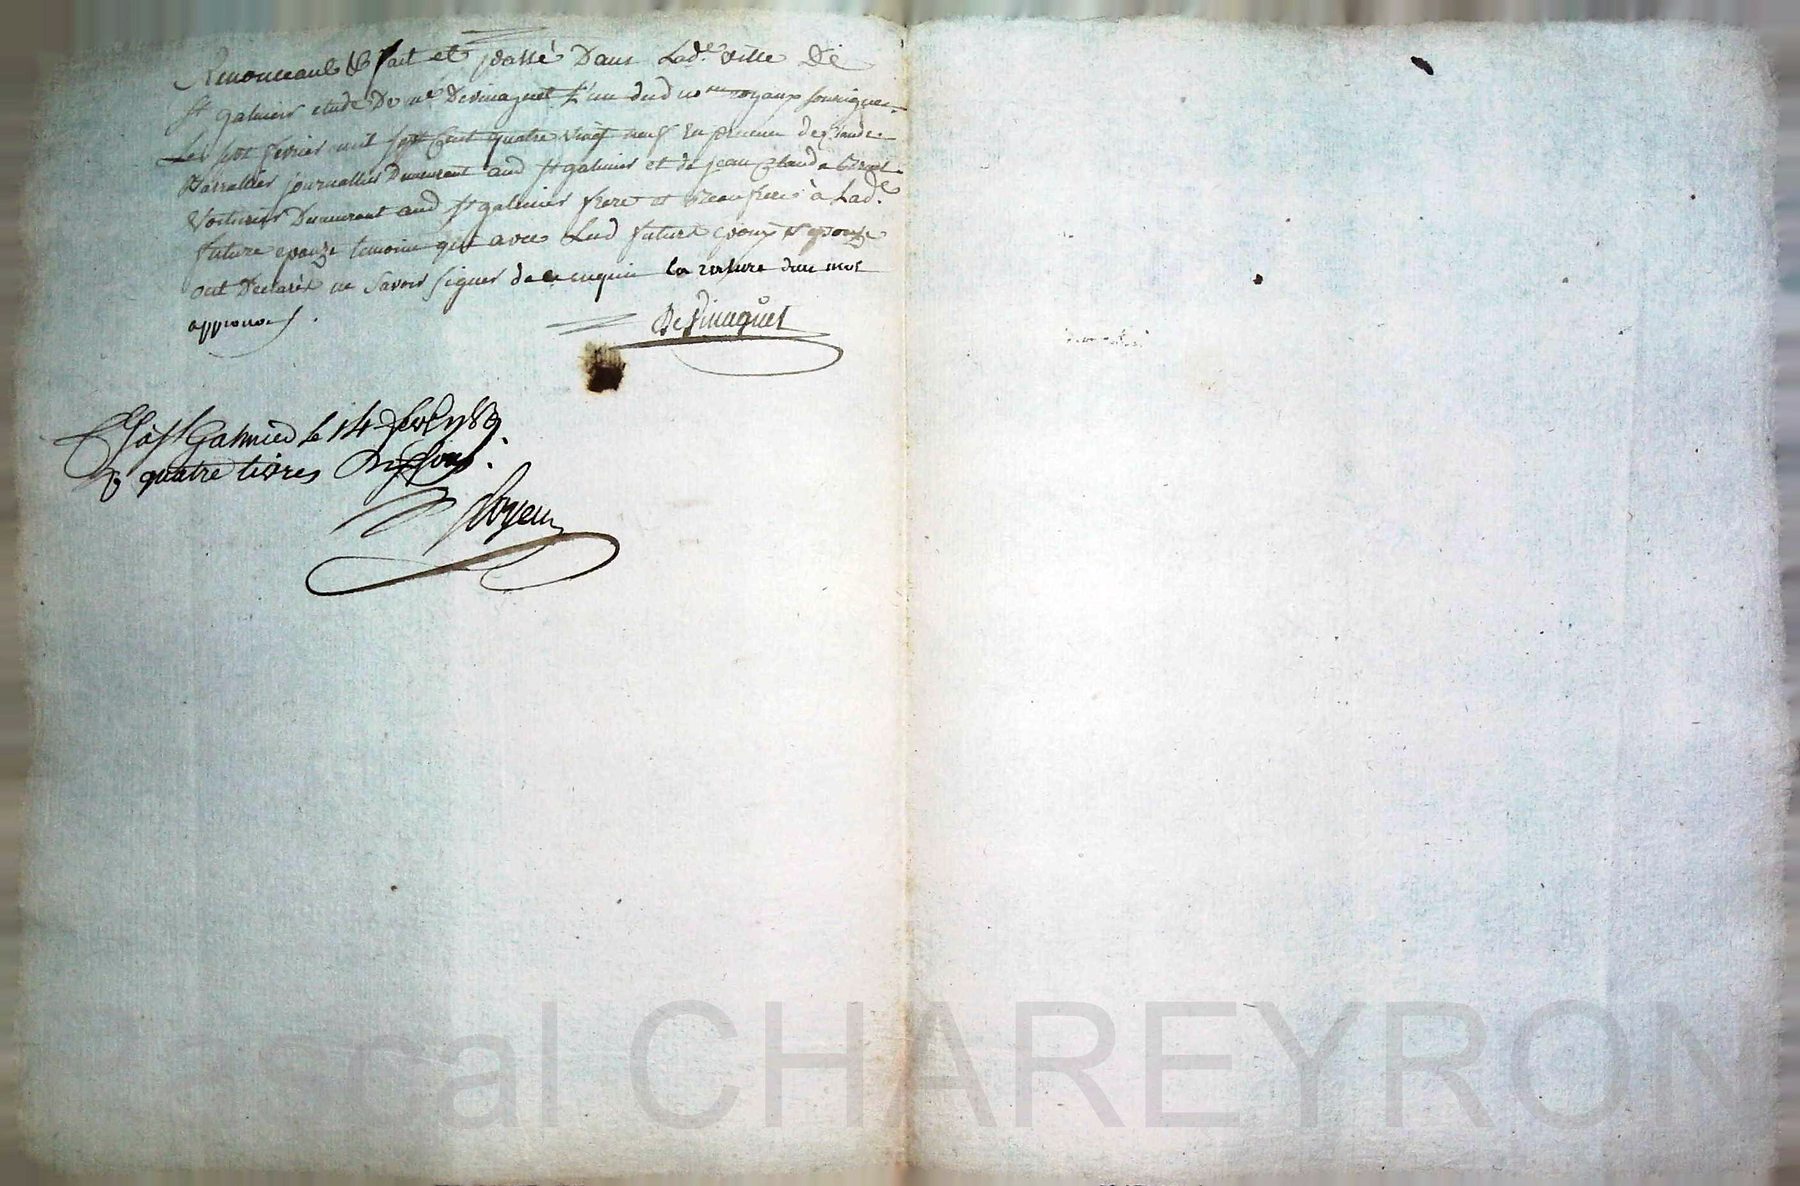 Renonceant &c fait et passé Dans Lad.e ville De
St galmier etude De me Devinaguet L'un dud nores royaux soussignes
Les sept fevrier mil sept Cent quatre vingt neuf En presence de Claude
journallier Demeurant aud St galmier et de jean Claude
Voiturier Demeurant aud St galmier frere et Beaufrere à Lad.e
future epouze temoins qui avec Lesd futurs epoux & epouze
ont Declarés ne Savoir signer de ce enquis la rature d'un mot
approuvé.
DeVinaguet
à St Galmier le 14 1789
& quatre livres sous.
Pascal CHAREYRON